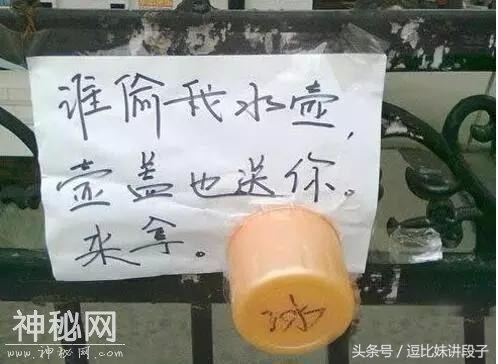 谁偷我水壶,
壶盖也送你。
来拿。
冰
神秘网
www.shenmiw.com
头条号／逗比妹讲段子